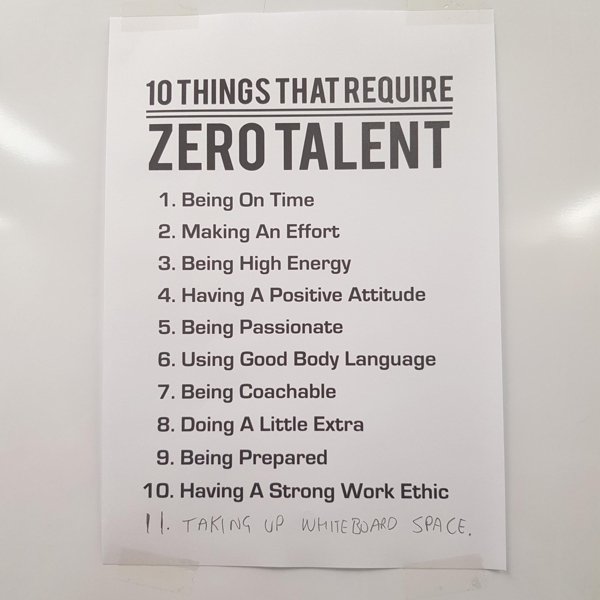 10 THINGS THAT REQUIRE
ZERO TALENT
1. Being On Time
2. Making An Effort
3. Being High Energy
4. Having A Positive Attitude
5. Being Passionate
6. Using Good Body Language
7. Being Coachable
8. Doing A Little Extra
9. Being Prepared
10. Having A Strong Work Ethic
11. TAKING UP WHITEBOARD SPACE.